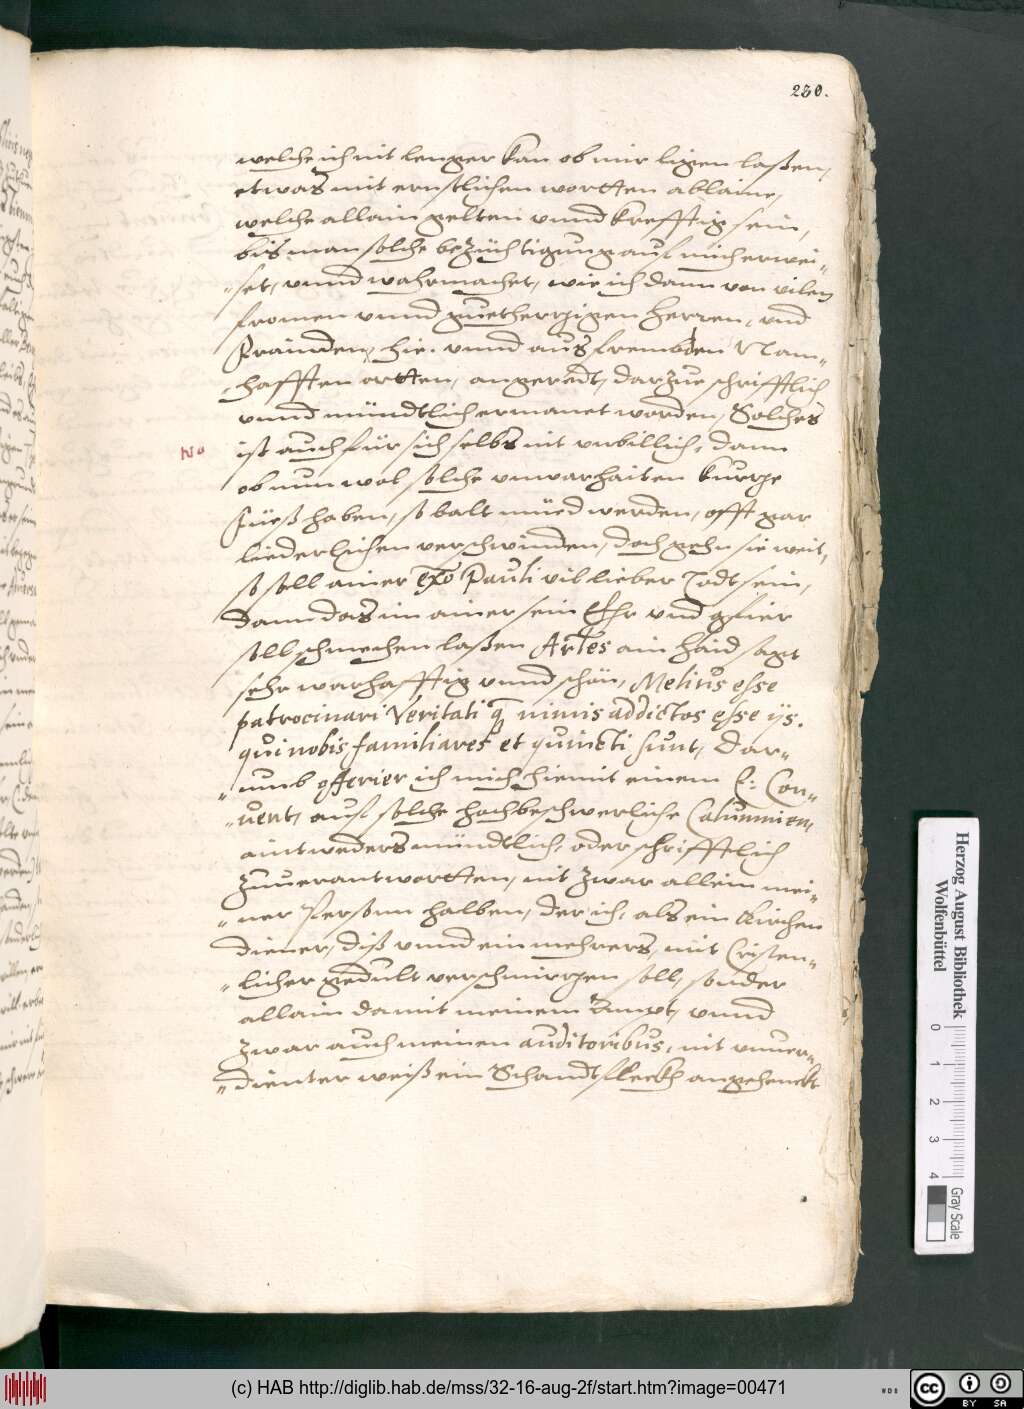 230.
welche ich nit lenger kan ob mir ligen laßen,
etwas mit ernstlichen wortten ablaine,
welche allain gelten vnnd krefftig sein,
bis man solche bezüchtigung auf mich erwei-
set, vnnd wahrmachet, wie ich dann von vilen
fromen vnnd guethertzigen Herren, vnd
Fräinden, hie. vnnd aus frembden Nam-
hafften ortten, angeredt, darzue schrifftlich
vnnd mündtlich ermanet worden, Solches
No ist auch für sich selbs nit vnbillich, dann
ob nun wol solche vnwarhaiten kurtze
Füeß haben, so balt müed werden, offt gar
liederlichen verschwinden, doch gehn sie weit,
so soll ainer exo Pauli vil lieber Todt sein,
dann das im ainer sein Ehr vnd
soll schmechen laßen Artes ain Haid sagt
sehr warhafftig vnnd schön, Melius esse
patrocinari Veritati q̄ nimis addictos esse ijs.
qui nobis familiares et quincti sunt, Dar-
umb offerier ich mich hiemit einem E: Con-
uent, auf solche hochbeschwerliche Calumnien,
aintweders mündtlich, oder schrifftlich
zuuerantwortten, nit zwar allein mei-
ner Person halben, der ich, als ein Kirchen
diener, diß vnnd ein mehrers, mit Cristen-
licher gedult verschmirtzen soll, sonder
allain damit meinem Ampt, vnnd
zwar auch meinen auditoribus, nit vnuer-
dienter weiß ein Schandtfleckh angehenckt
Herzog August Bibliothek
Wolfenbüttel
0 1 2 3 4
Gray Scale
(c) HAB http://diglib.hab.de/mss/32-16-aug-2f/start.htm?image=00471
WDB
cc BY SA